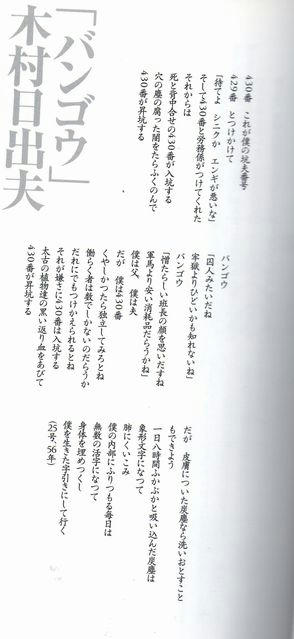 「バンゴウ」
木村日出夫
430番 これが僕の坑夫番号
429番 とつけかけて
「待てよ シニクか エンギが悪いな」
そして430番と労務係がつけてくれた
それからは
死と背中合せの430番が入坑する
穴の塵の腐った闇をたらふくのんで
430番が昇坑する
バンゴウ
「囚人みたいだね
牢獄よりひどいかも知れないね」
バンゴウ
「憎たらしい班長の顔を思いだすね
軍馬より安い消耗品だらうかね」
僕は父、僕は夫
だが 僕は430番
くやしかったら独立してみろとね
働らく者は数でしかないのだらうか
だれにでもつけかえられるとね
それが嫌さに430番は入坑する
太古の植物達の黒い返り血をあびて
430番が昇坑する
だが 皮膚についた炭塵なら洗いおとすこと
もできよう
一日八時間ふかぶかと吸い込んだ炭塵は
象形文字になって
肺にくいこみ
僕の内部にふりつもる毎日は
無数の活字になって
身体を埋めつくし
僕を生きた字引きにして行く
(25号、56年)